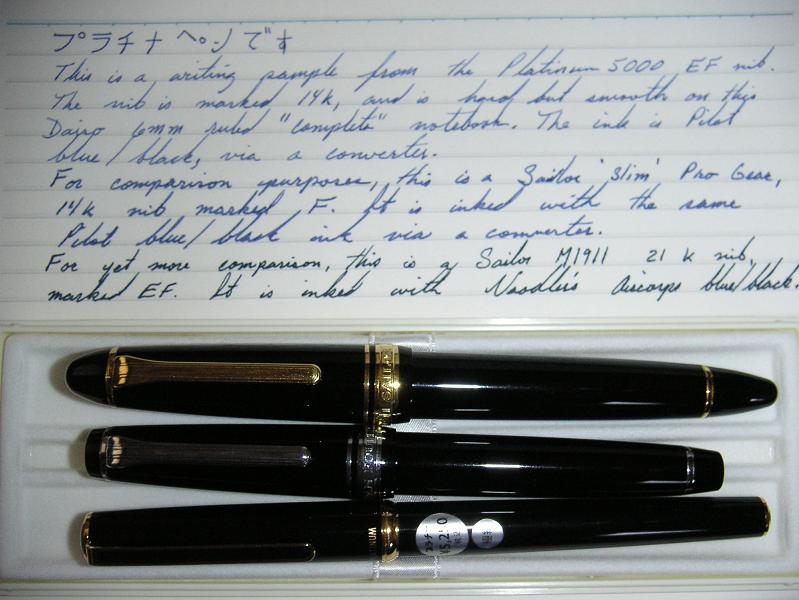 プラチナ ペンです
This is a writing sample from the Platinum 5000 EF nib.
The nib is marked 14k, and is hard but smooth on this
Daigo 6mm ruled "complete" notebook. The ink is Pilot
blue/black, via a converter.
For comparison purposes, this is a Sailor 'Slim' Pro Gear,
14k nib marked F. It is inked with the same
Pilot blue/black ink via a converter.
For yet more comparison, this is a Sailor M1911 21 k nib,
marked EF. It is inked with Noodler's Aircorps blue/black.